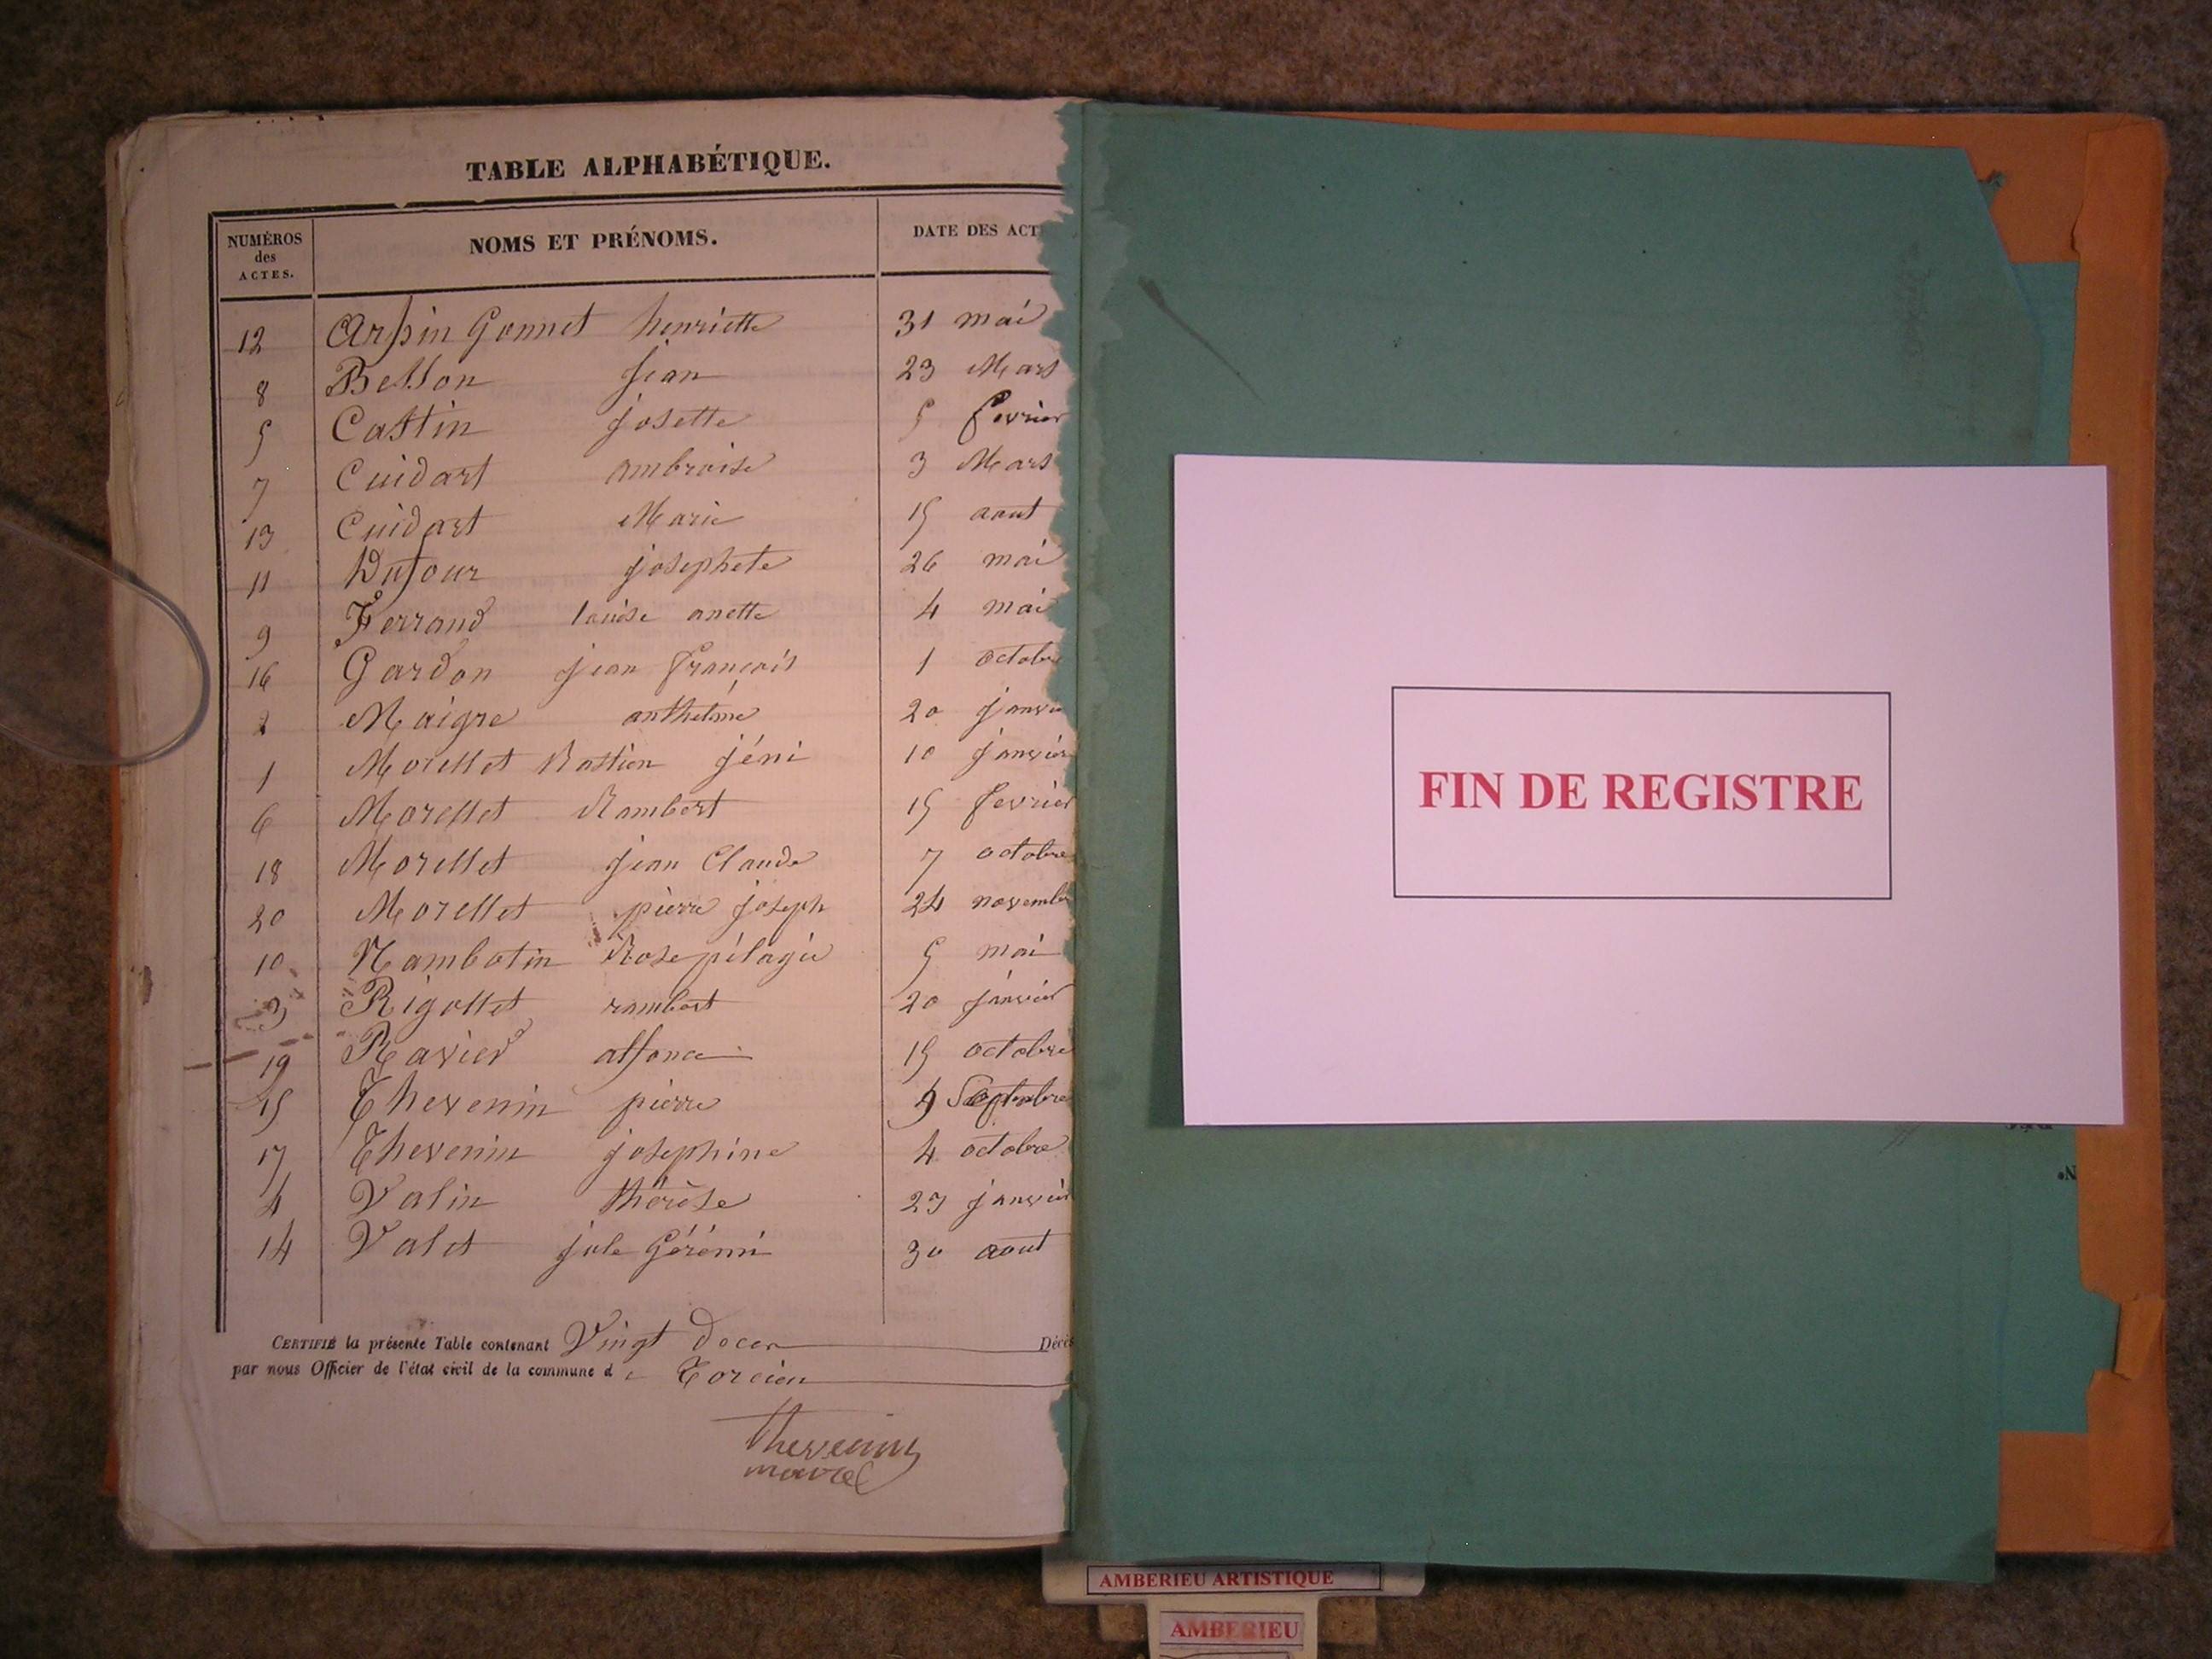 TABLE ALPHABÉTIQUE.
NUMÉROS des ACTES. NOMS ET PRÉNOMS. DATE DES ACT
12 Arpin Gonnet henriette 31 mai
8 Bellon jean 23 Mars
5 Cattin josette 5 fevrier
7 Cuidart ambroise 3 Mars
13 Cuidart Marie 15 aout
11 Dufour josephete 26 mai
9 Ferrand louise anette 4 mai
16 Gardon jean françois 1 octobre
2 Maigre anthelme 20 janvie
1 Morellet Bastien jéni 10 janvier
6 Morellet Rambert 15 fevrier
18 Morellet jean Claude 7 octobre
20 Morellet pierre joseph 24 novemb
10 Nambotin Rose pélagie 5 mai
3 Rigollet rambert 20 janvier
19 Ravier alfonce 15 octobre
15 Thevenin pierre 9 Septembre
17 Thevenin josephine 4 octobre
4 Valin thérèse 23 janvier
14 Valet jule Gérémi 30 aout
CERTIFIÉ la présente Table contenant Vingt Décès
par nous Officier de l'état civil de la commune de Torcieu
thevenin
FIN DE REGISTRE
AMBERIEU ARTISTIQUE
AMBERIEU